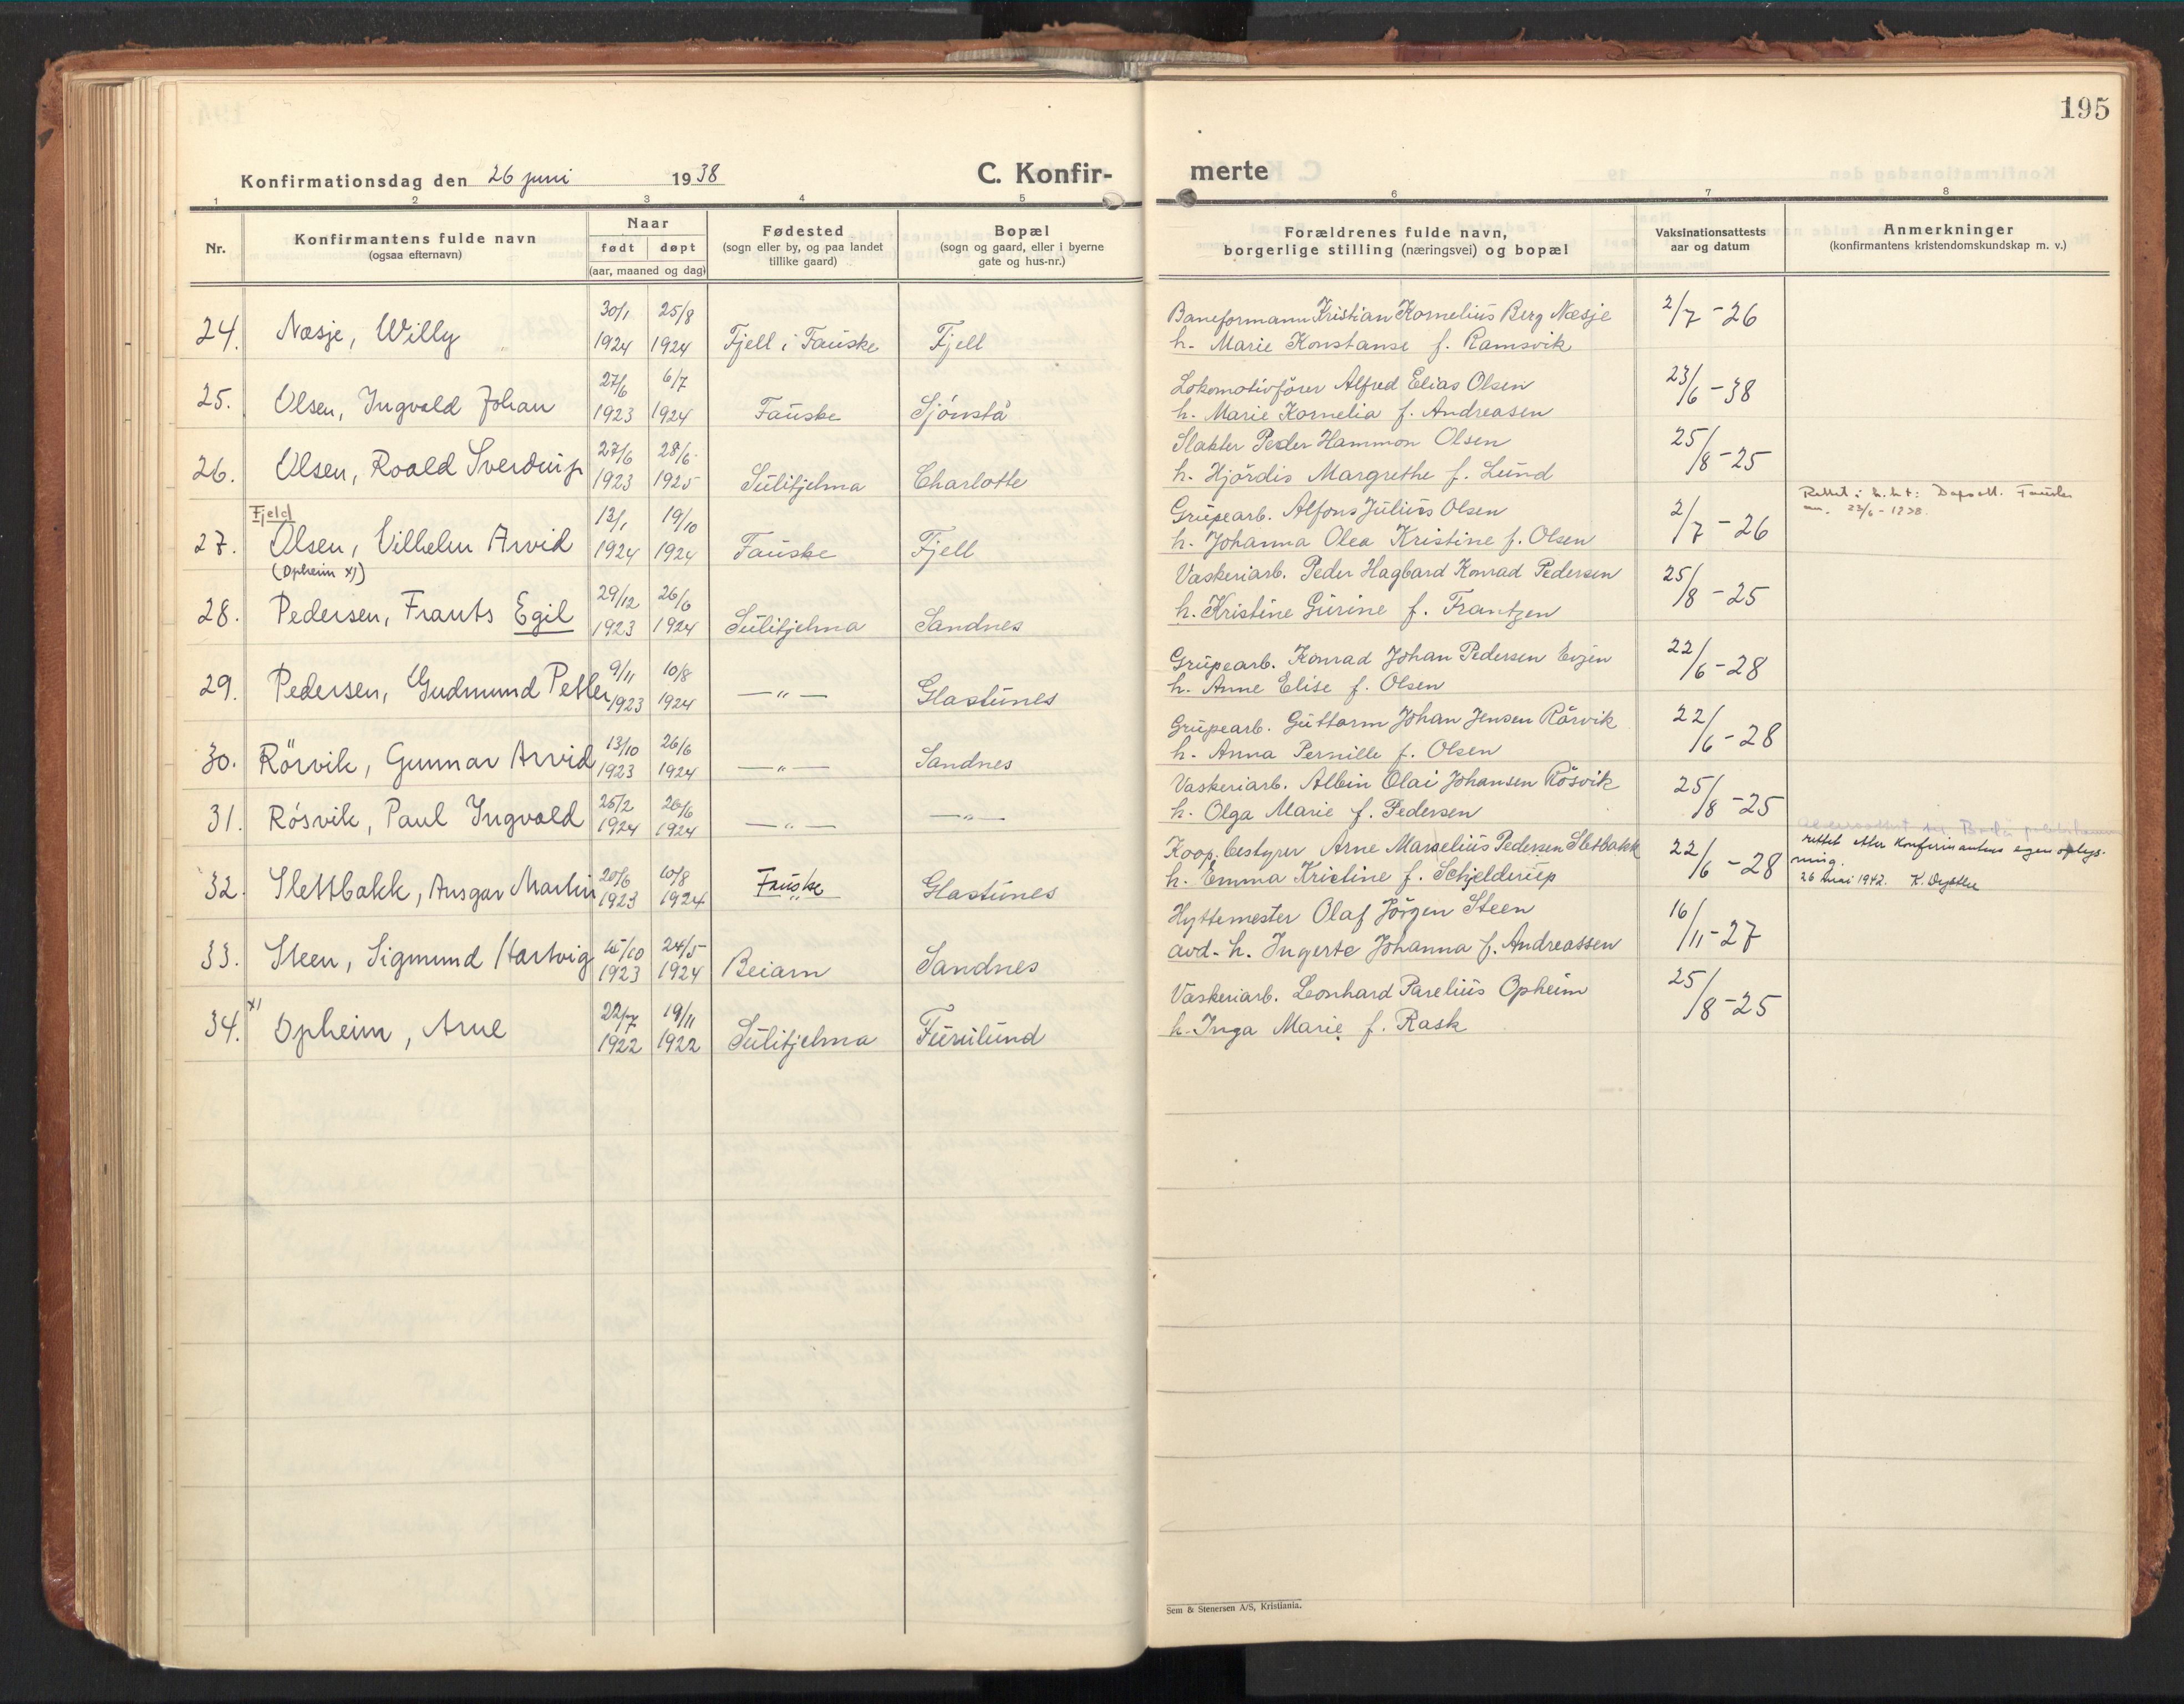 195
Konfirmationsdag den 26 juni 1938
C. Konfir-
merte
1 2 3 4 5 6 7 8
Nr.
Konfirmantens fulde navn
(ogsaa efternavn)
Naar
født døpt
(aar, maaned og dag)
Fødested
(sogn eller by, og paa landet
tillike gaard)
Bopæl
(sogn og gaard, eller i byerne
gate og hus-nr.)
Forældrenes fulde navn,
borgerlige stilling (næringsvei) og bopæl
Vaksinationsattests
aar og datum
Anmerkninger
(konfirmantens kristendomskundskap m. v.)
30/1 25/8 Baneformann Kristian Kornelius Berg Næsje 2/7 - 26
24. Næsje, Willy 1924 1924 Fjell i Fauske Fjell h. Marie Konstanse f. Ramsvik
27/6 6/7 Lokomotivfører Alfred Elias Olsen 23/6 - 38
25. Olsen, Ingvald Johan 1923 1924 Fauske Sjönstå h. Marie Kornelia f. Andreasen
27/6 28/6 Slakter Peder Hammon Olsen 25/8 - 25
26. Olsen, Roald Sverdrup 1923 1925 Sulitjelma Charlotte h. Hjördis Margrethe f. Lund
Fjeld 12/1 19/10 Grubearb. Alfons Julius Olsen 2/7 - 26 Rettet i h.h.t: Dåpsatt. Fauske
27. Olsen, Vilhelm Arvid 1924 1924 Fauske Fjell h. Johanna Olea Kristine f. Olsen 23/6 - 1938.
(Opheim x))
29/12 26/6 Vaskeriarb. Peder Hagbard Konrad Pedersen 25/8 - 25
28. Pedersen, Frants Egil 1923 1924 Sulitjelma Sandnes h. Kristine Gurine f. Frantzen
9/11 10/8 Grubearb. Konrad Johan Pedersen Evjen 22/6 - 28
29. Pedersen, Gudmund Petter 1923 1924 — " — Glastunes h. Anne Elise f. Olsen
13/10 26/6 Grubearb. Guttorm Johan Jensen Rörvik 22/6 - 28
30. Rörvik, Gunnar Arvid 1923 1924 — " — Sandnes h. Anna Pernille f. Olsen
25/2 26/6 Vaskeriarb. Albin Olai Johansen Rösvik 25/8 - 25
31. Rösvik, Paul Ingvald 1924 1924 — " — — " — h. Olga Marie f. Pedersen
20/6 10/8 Koop. bestyrer Arne Marselius Pedersen Sletbakk 22/6 - 28 rettet etter konfirmantens egen oplys-
32. Slettbakk, Ansgar Martin 1923 1924 Fauske Glastunes h. Emma Kristine f. Schjelderup ning.
26 mai 1942.
15/10 24/5 Hyttemester Olaf Jörgen Steen 16/11 - 27
33. Steen, Sigmund Hartvig 1923 1924 Beiarn Sandnes avd. h. Ingerte Johanna f. Andreassen
x) 22/7 19/11 Vaskeriarb. Leonhard Parelius Opheim 25/8 - 25
34. Opheim, Arne 1922 1922 Sulitjelma Furulund h. Inga Marie f. Rask
Sem & Stenersen A/S, Kristiania.